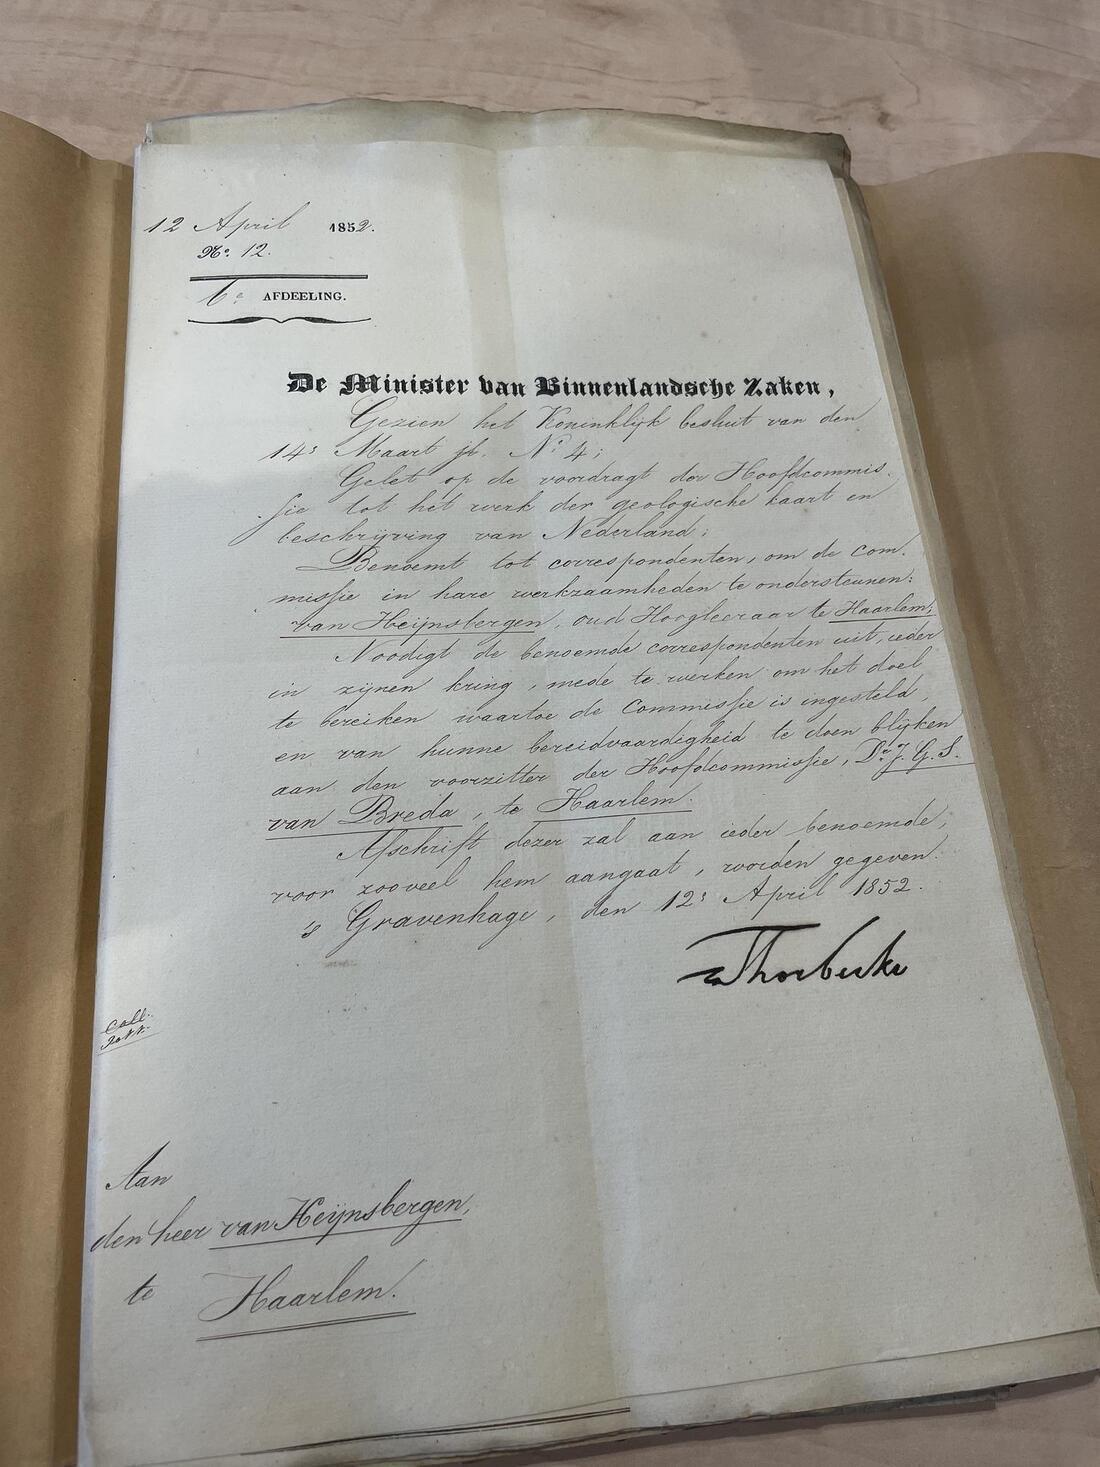 12 April 1852.
No. 12.
6e AFDEELING.
De Minister van Binnenlandsche Zaken,
Gezien het Koninklijk besluit van den
14s Maart jl. No 4;
Gelet op de voordragt der Hoofdcommis-
sie tot het werk der geologische kaart en
beschrijving van Nederland;
Benoemt tot correspondenten, om de com-
missie in hare werkzaamheden te ondersteunen:
van Heijnsbergen, oud Hoogleeraar te Haarlem;
Noodigt de benoemde correspondenten uit, ieder
in zijnen kring, mede te werken om het doel
te bereiken waartoe de Commissie is ingesteld,
en van hunne bereidvaardigheid te doen blijken
aan den voorzitter der Hoofdcommissie, Dr. J. G. S.
van Breda, te Haarlem.
Afschrift dezer zal aan ieder benoemde,
voor zooveel hem aangaat, worden gegeven.
's Gravenhage, den 12s April 1852.
Thorbecke
Coll.
Aan
den heer van Heijnsbergen,
te Haarlem.